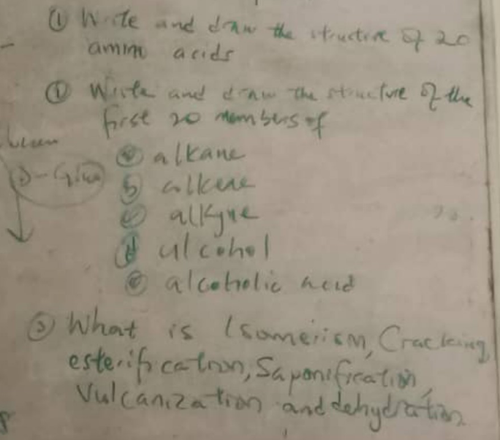 ① Write and draw the structure of 20
amino acids
① Write and draw the structure of the
first 20 members of
ⓐ alkane
ⓑ alkene
ⓒ alkyne
ⓓ alcohol
ⓔ alcoholic acid
③ What is Isomerism, Cracking,
esterification, Saponification,
Vulcanization and dehydration